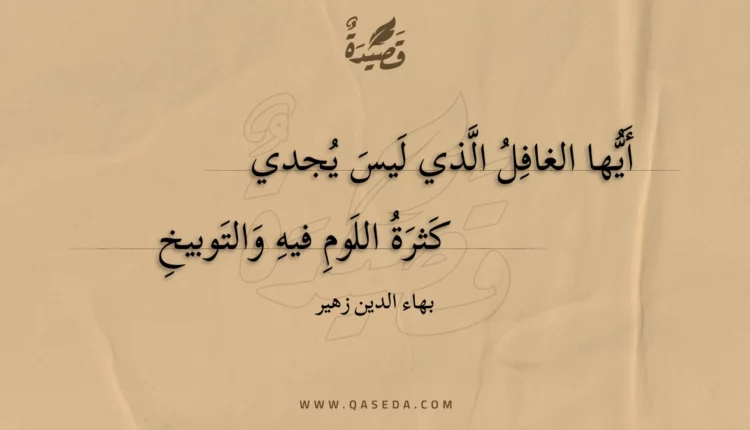 قَصِيدَةٌ
أَيُّها الغافِلُ الَّذي لَيسَ يُجدي
كَثرَةُ اللَومِ فيهِ وَالتَوبيخِ
بهاء الدين زهير
WWW.QASEDA.COM